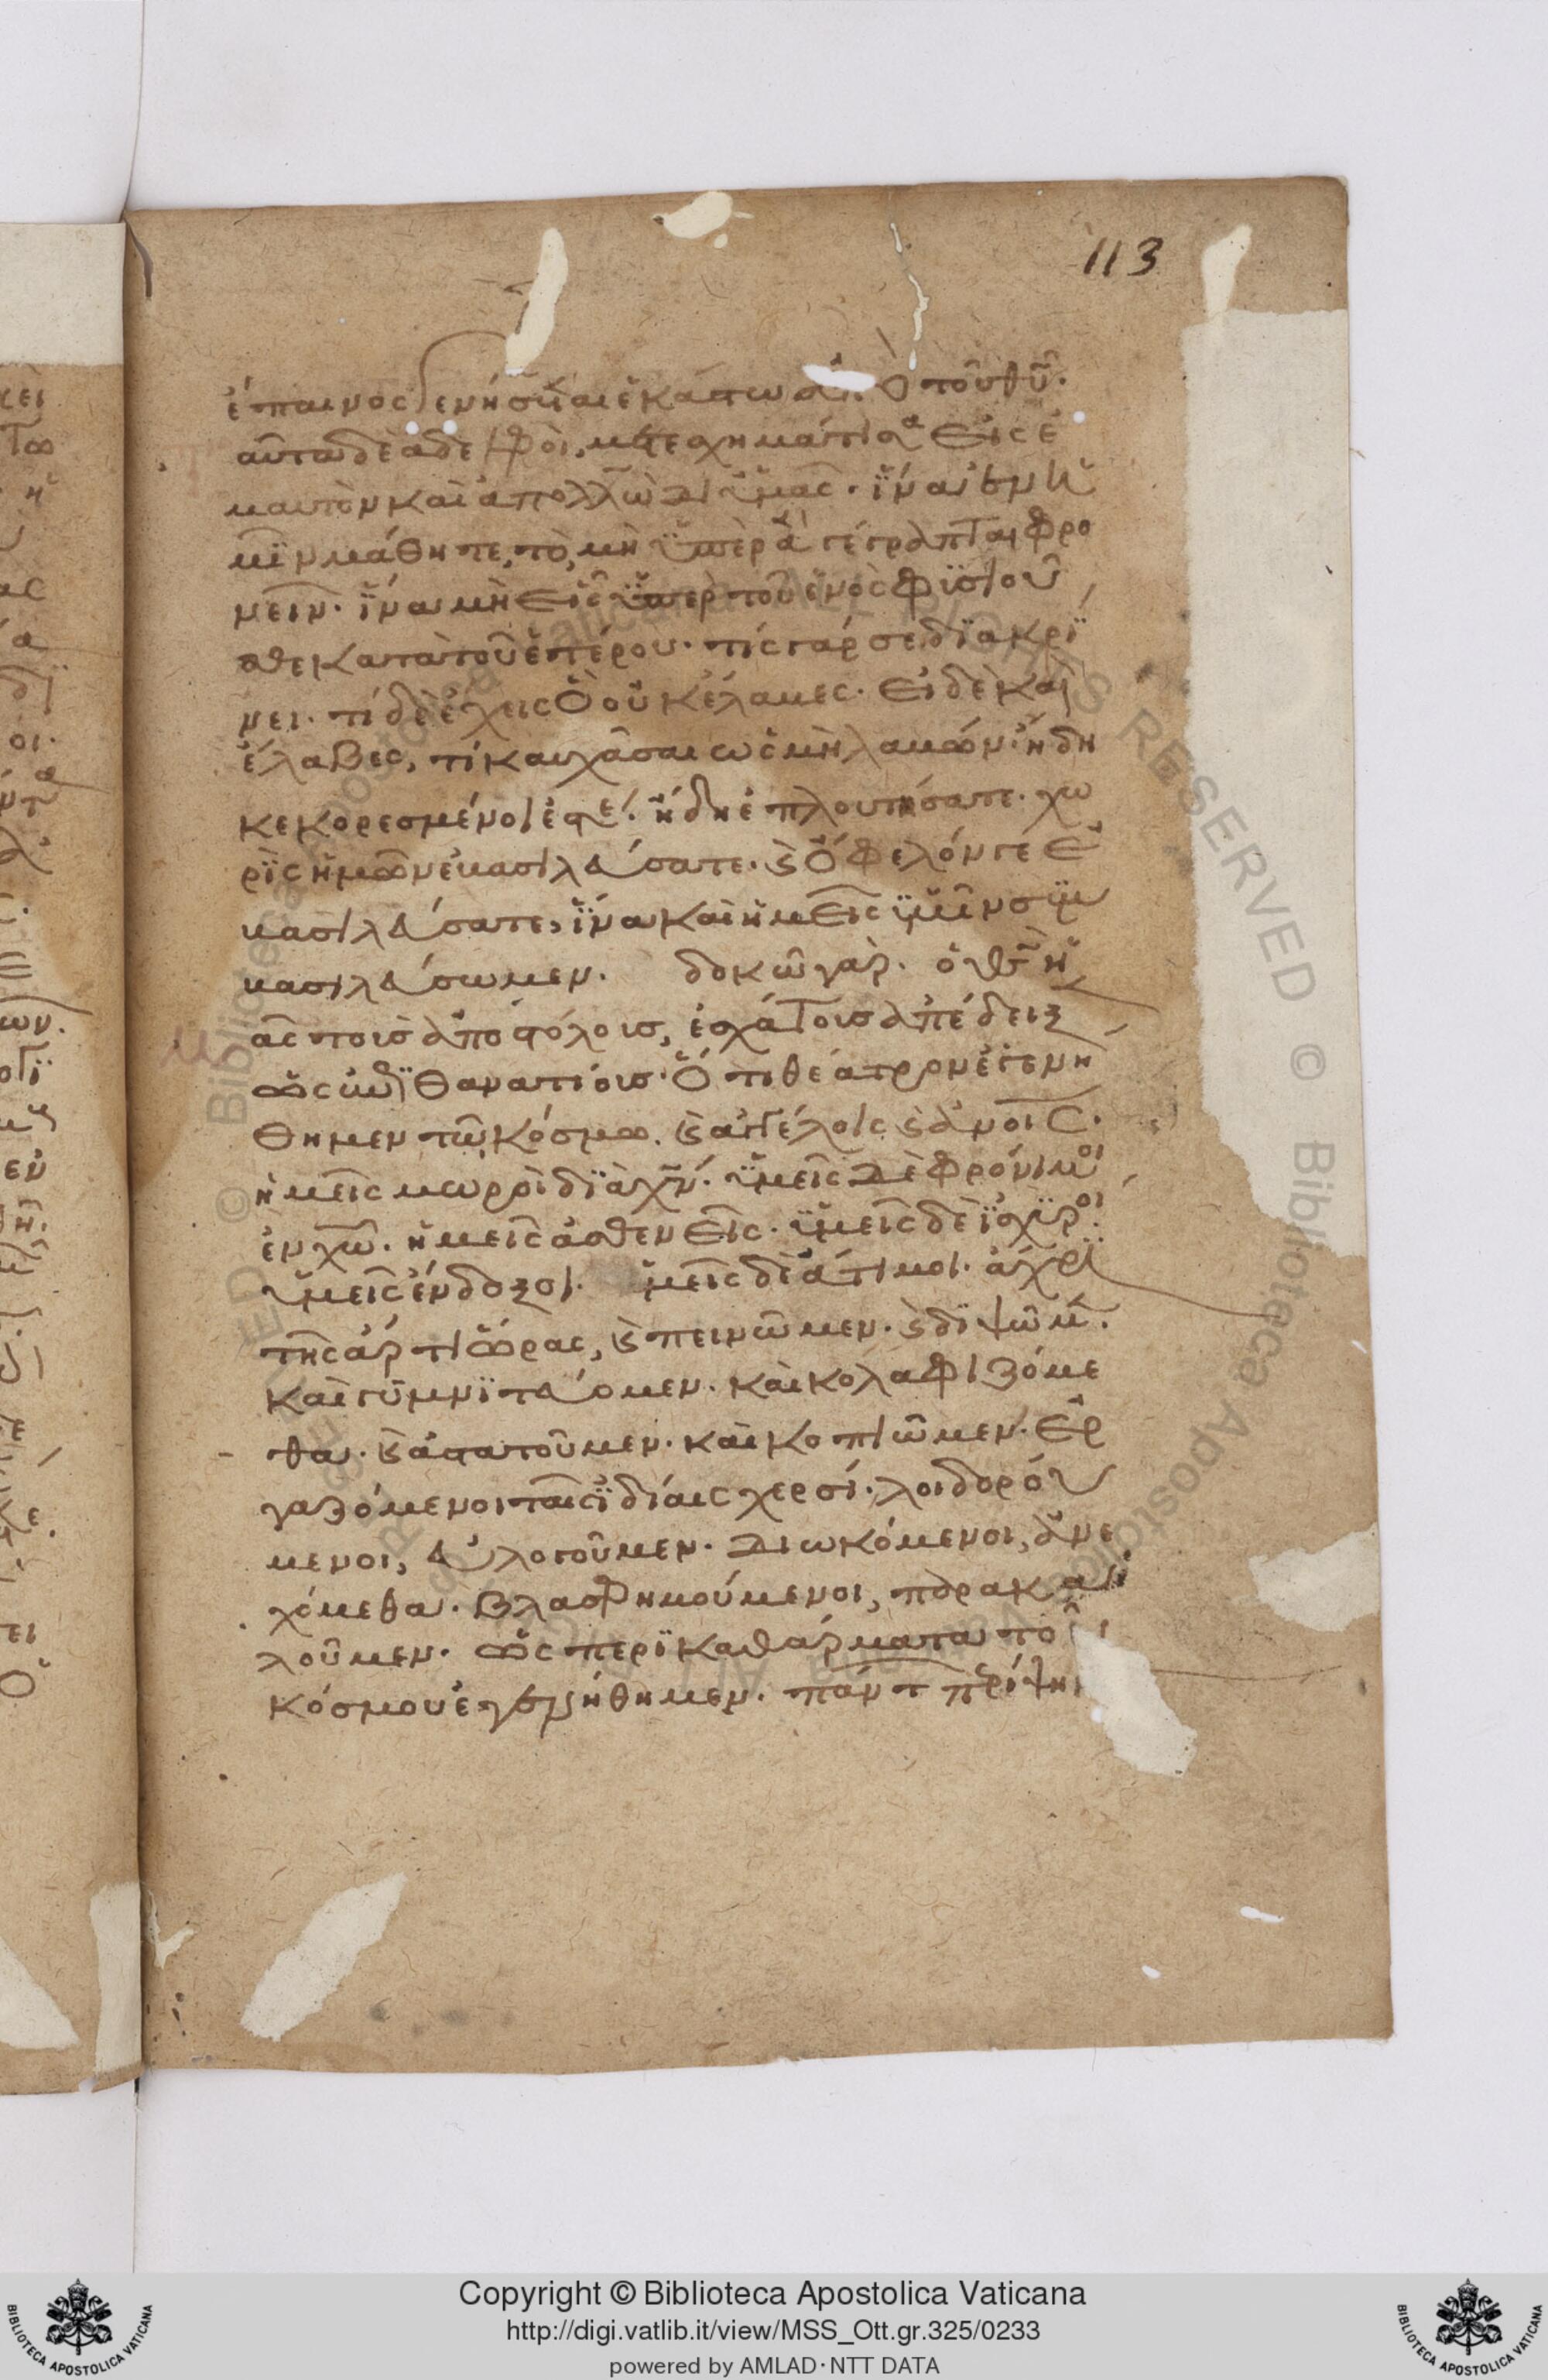 113
ἔπαινος γενήσεται ἑκάστω ἀπὸ τοῦ θῦ.
αὐτα δὲ ἀδελφοὶ, μετεσχημάτισα εἰς ἐ
μαυτὸν καὶ ἀπολλὼ δι ὑμᾶς. ἵνα ἐν ἡ
μῖν μάθητε, τὸ, μὴ ὑπὲρ ἃ γέγραπται φρο
νεῖν. ἵνα μὴ εἷς ὑπὲρ τοῦ ἑνὸς φυσιοῦ
σθε κατὰ τοῦ ἑτέρου. τίς γάρ σε διακρί
νει. τί δὲ ἔχεις ὃ οὐκ ἔλαβες. εἰ δὲ καὶ
ἔλαβες, τί καυχᾶσαι ὡς μὴ λαβών. ἤδη
κεκορεσμένοι ἐστέ. ἤδη ἐπλουτήσατε. χω
ρὶς ἡμῶν ἐβασιλεύσατε. καὶ ὄφελόν γε ἐ
βασιλεύσατε, ἵνα καὶ ἡμεῖς ὑμῖν συμ
βασιλεύσωμεν. δοκῶ γάρ. ὁ θς ἡ
μ
ᾶς τοὺς ἀποστόλους, ἐσχάτους ἀπέδειξ
ὡς ἐπιθανατίους. ὅτι θέατρον ἐγενή
θημεν τῶ κόσμω. καὶ ἀγγέλοις καὶ ἀνοις.
ἡμεῖς μωροὶ διὰ χν. ὑμεῖς δὲ φρόνιμοι
ἐν χω. ἡμεῖς ἀσθενεῖς. ὑμεῖς δὲ ἰσχυροί.
ὑμεῖς ἔνδοξοι. ἡμεῖς δὲ ἄτιμοι. ἄχρι
τῆς ἄρτι ὥρας, καὶ πεινῶμεν. καὶ διψῶμ.
καὶ γυμνιτεύομεν. καὶ κολαφιζόμε
θα. καὶ ἀστατοῦμεν. καὶ κοπιῶμεν. ἐρ
γαζόμενοι ταῖς ἰδίαις χερσί. λοιδορού
μενοι, εὐλογοῦμεν. διωκόμενοι, ἀνε
χόμεθα. βλασφημούμενοι, παρακα
λοῦμεν. ὡς περικαθάρματα το
κόσμου ἐγενήθημεν. πάντ περίψη
Copyright © Biblioteca Apostolica Vaticana
http://digi.vatlib.it/view/MSS_Ott.gr.325/0233
powered by AMLAD·NTT DATA
BIBLIOTECA APOSTOLICA VATICANA
BIBLIOTECA APOSTOLICA VATICANA